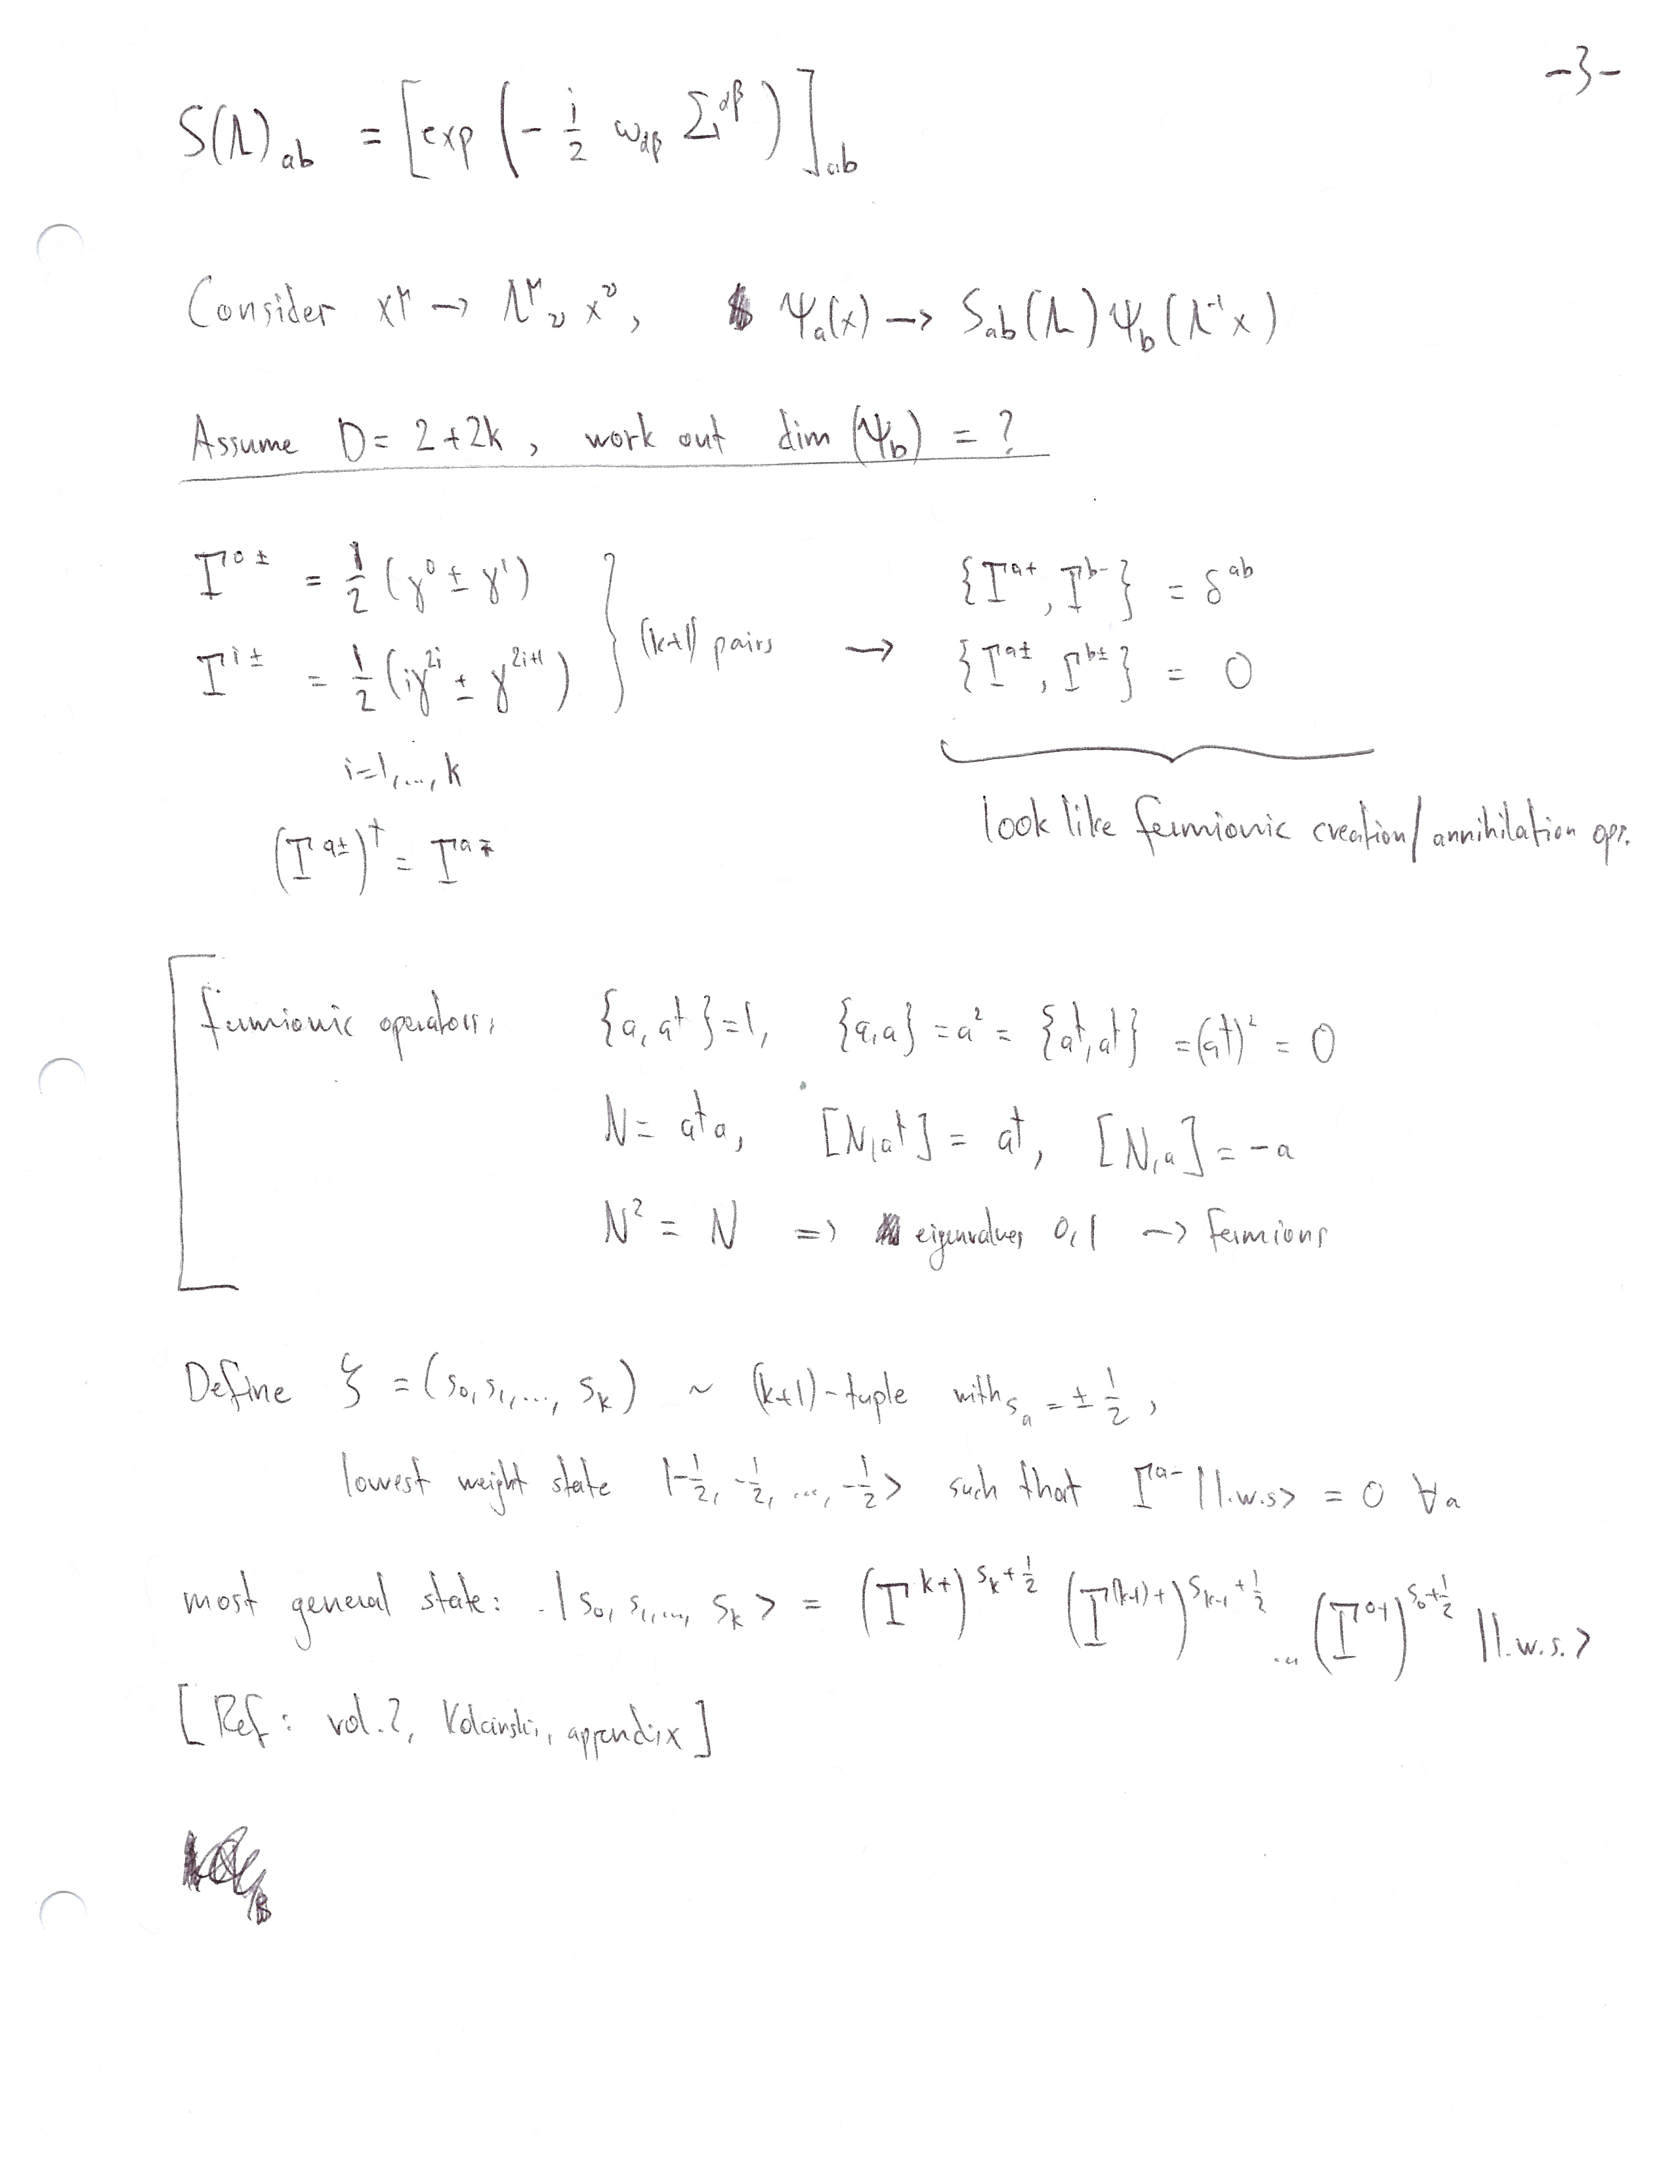 -3-
S(Λ)_ab = [exp(-i/2 ω_αβ Σ^αβ)]_ab
Consider x^μ → Λ^μ_ν x^ν, Ψ_a(x) → S_ab(Λ) Ψ_b(Λ^-1 x)
Assume D = 2+2k, work out dim (Ψ_b) = ?
Γ^0± = 1/2 (γ^0 ± γ^1)
Γ^i± = 1/2 (iγ^2i ± γ^2i+1)
(k+1) pairs →
{Γ^a+, Γ^b-} = δ^ab
{Γ^a±, Γ^b±} = 0
i=1,...,k
(Γ^a±)^† = Γ^a∓
look like fermionic creation/annihilation ops.
fermionic operators: {a, a†}=1, {a,a} = a² = {a†,a†} = (a†)² = 0
N = a†a, [N,a†] = a†, [N,a] = -a
N² = N => eigenvalues 0,1 → fermions
Define ζ = (s_0, s_1, ..., s_k) ~ (k+1)-tuple with s_a = ± 1/2,
lowest weight state |-1/2, -1/2, ..., -1/2> such that Γ^a- |l.w.s> = 0 ∀a
most general state: |s_0, s_1, ..., s_k> = (Γ^k+)^s_k+1/2 (Γ^(k-1)+)^s_k-1+1/2 ... (Γ^0+)^s_0+1/2 |l.w.s.>
[Ref: vol. 2, appendix]